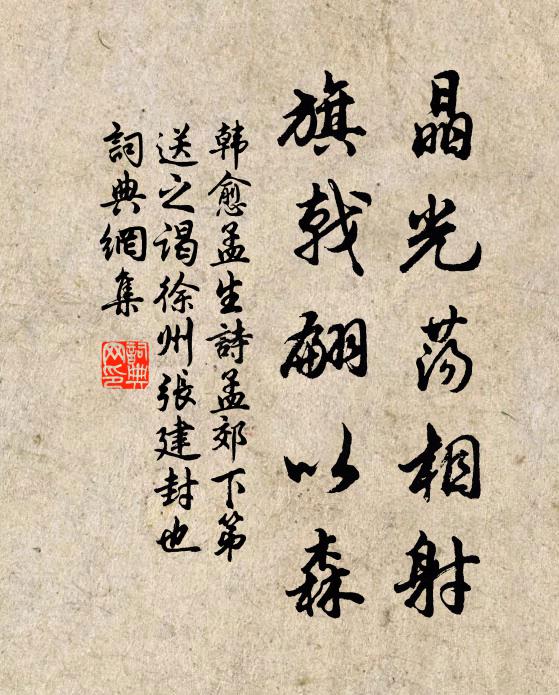 晶光荡相射
旗戟翩以森
韩愈孟生詩孟郊下第
送之谒徐州張建封也
詞典網集
詞典网印